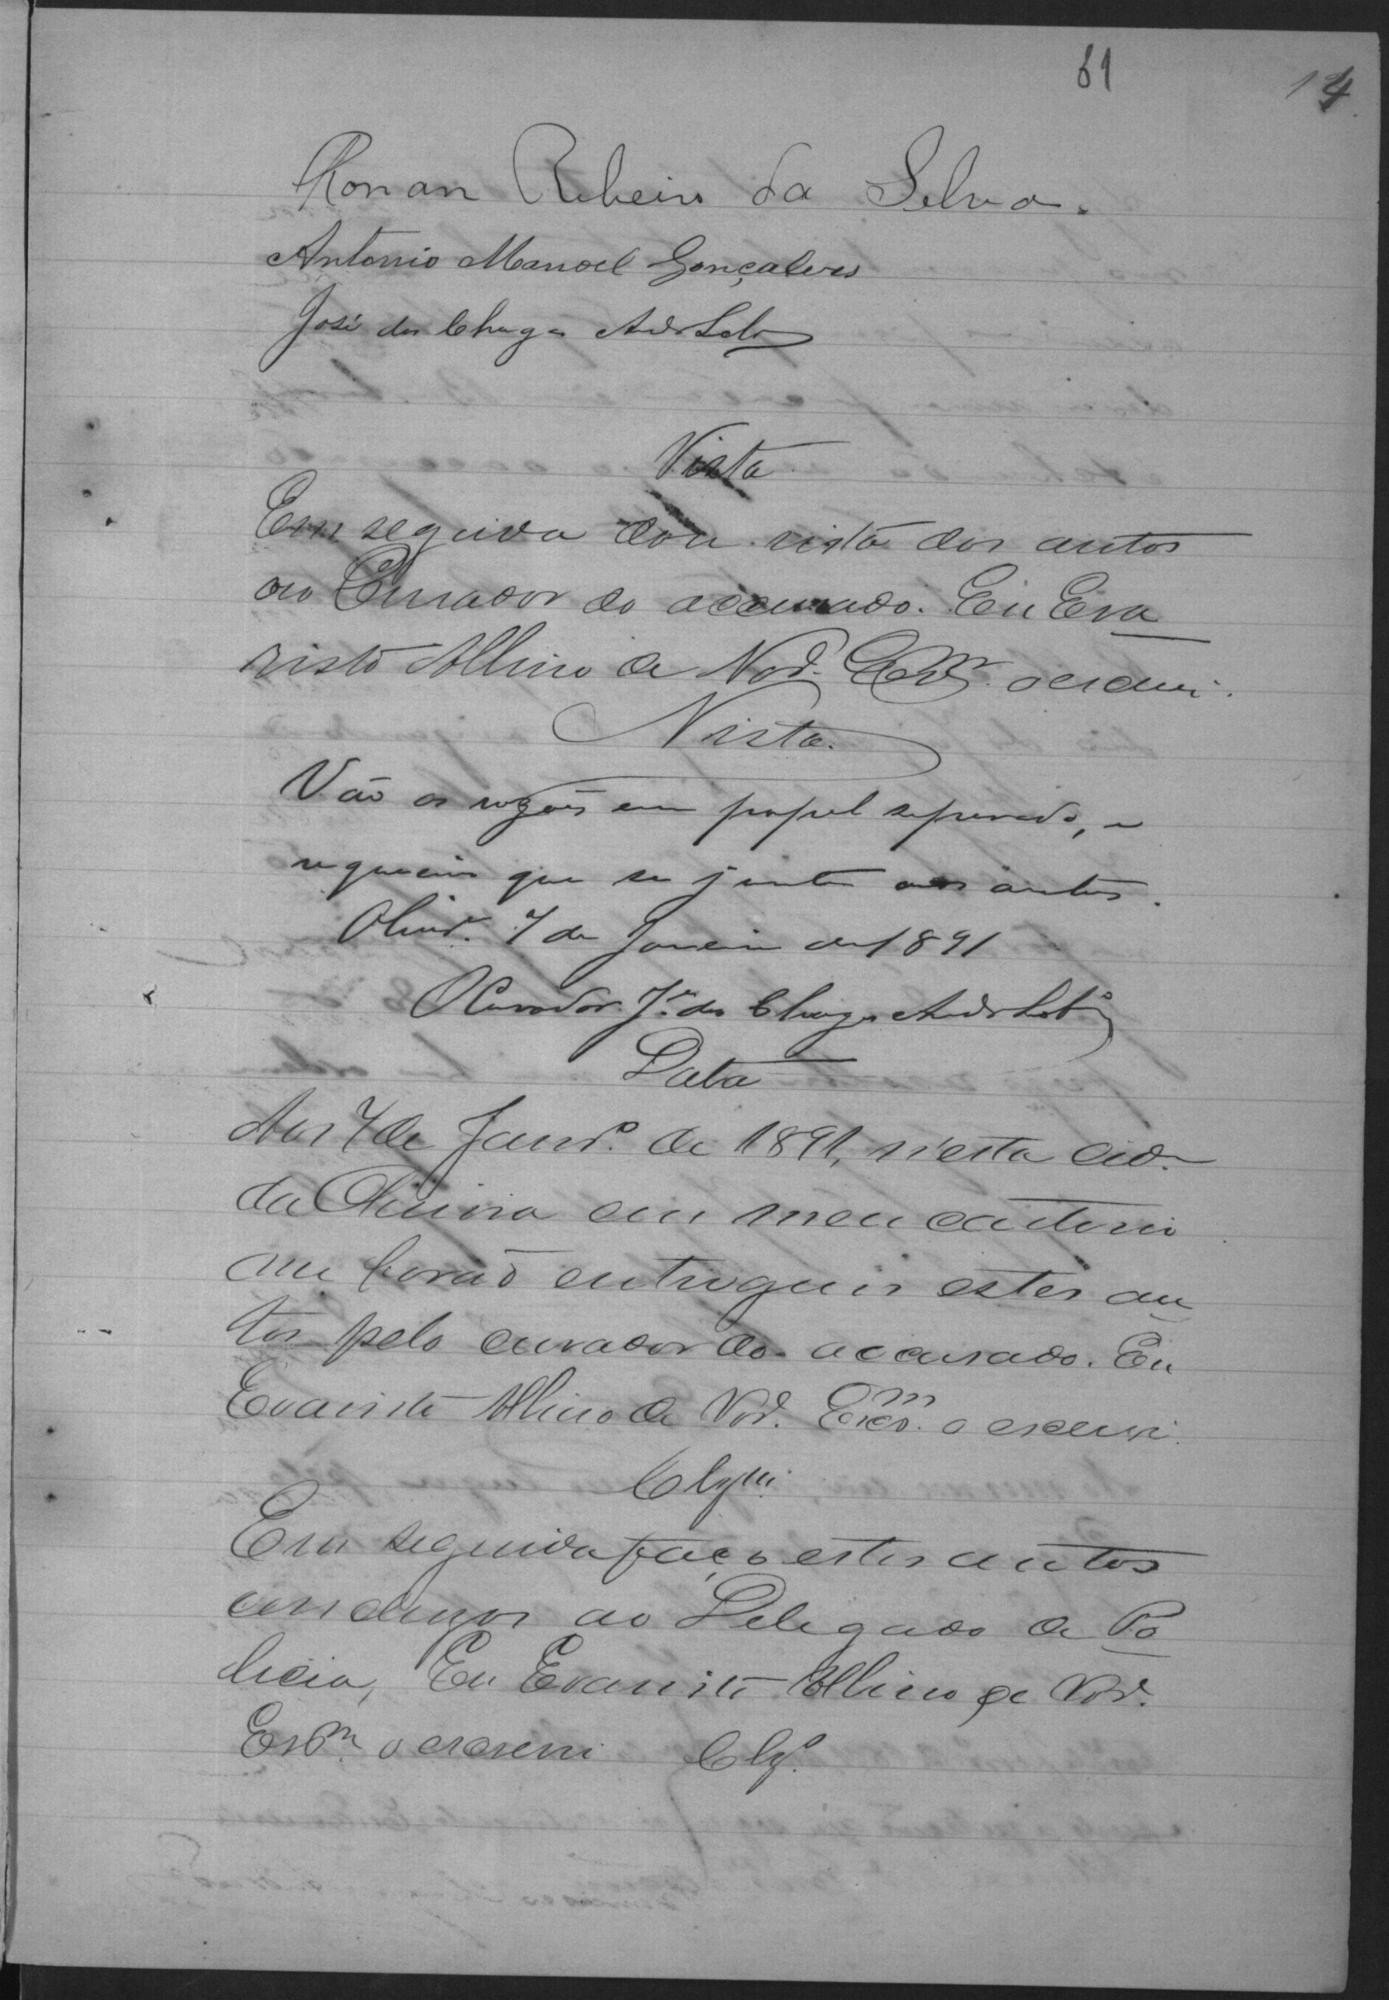 61 14
Honan Ribeiro da Selva.
Antonio Manoel Gonçalves
José das Chagas Andr Lobo
Vista
Em seguida dou vista dos autos
ao Curador do accusado. Eu Eva
risto Albino de Nor.ª Escr.m o escrevi.
Vista.
Vão as razões em papel separado, e
requeiro que se junte aos autos.
Olivr.ª 7 de Janeiro de 1891
O Curador J.e das Chagas Andr Lobo
Data
Aos 7 de Janr.º de 1891, n'esta cid.e
da Oliveira em meu cartorio
me forão entregues estes au
tos pelo curador do accusado. Eu
Evaristo Albino de Nor.ª Escr.m o escrevi.
Clzm.
Em seguida faço estes autos
conclusos ao Delegado de Po
licia, Eu Evaristo Albino de Nor.ª
Escr.m o escrevi Clz.º